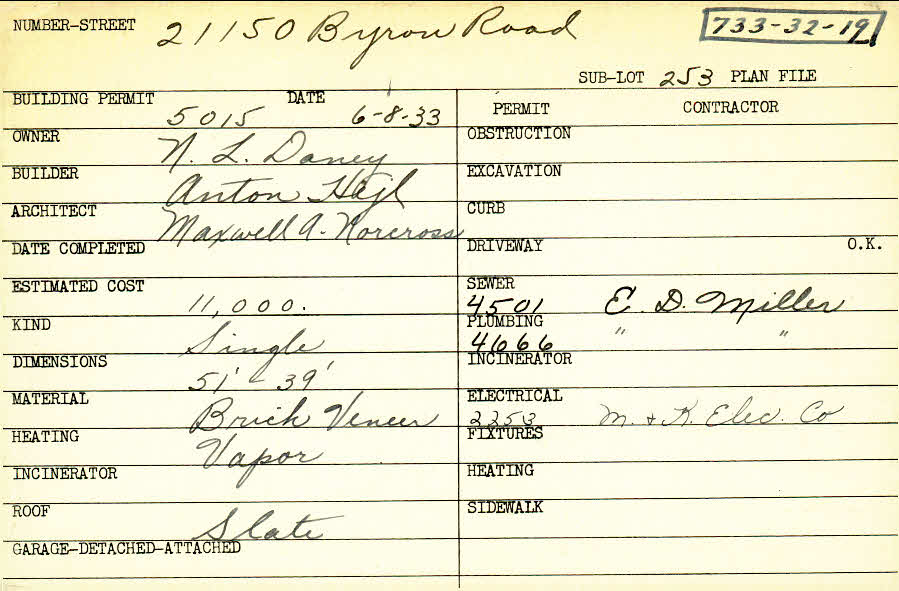 NUMBER-STREET 21150 Byron Road 733-32-19
SUB-LOT 253 PLAN FILE
BUILDING PERMIT 5015 DATE 6-8-33
OWNER N. L. Daney
BUILDER Anton Hejl
ARCHITECT Maxwell A. Norcross
DATE COMPLETED
ESTIMATED COST 11,000.
KIND Single
DIMENSIONS 51' - 39'
MATERIAL Brick Veneer
HEATING Vapor
INCINERATOR
ROOF Slate
GARAGE-DETACHED-ATTACHED
PERMIT CONTRACTOR
OBSTRUCTION
EXCAVATION
CURB
DRIVEWAY O.K.
SEWER
4501 E. D. Miller
PLUMBING
4666 " "
INCINERATOR
ELECTRICAL
2253 M. & K. Elec. Co
FIXTURES
HEATING
SIDEWALK